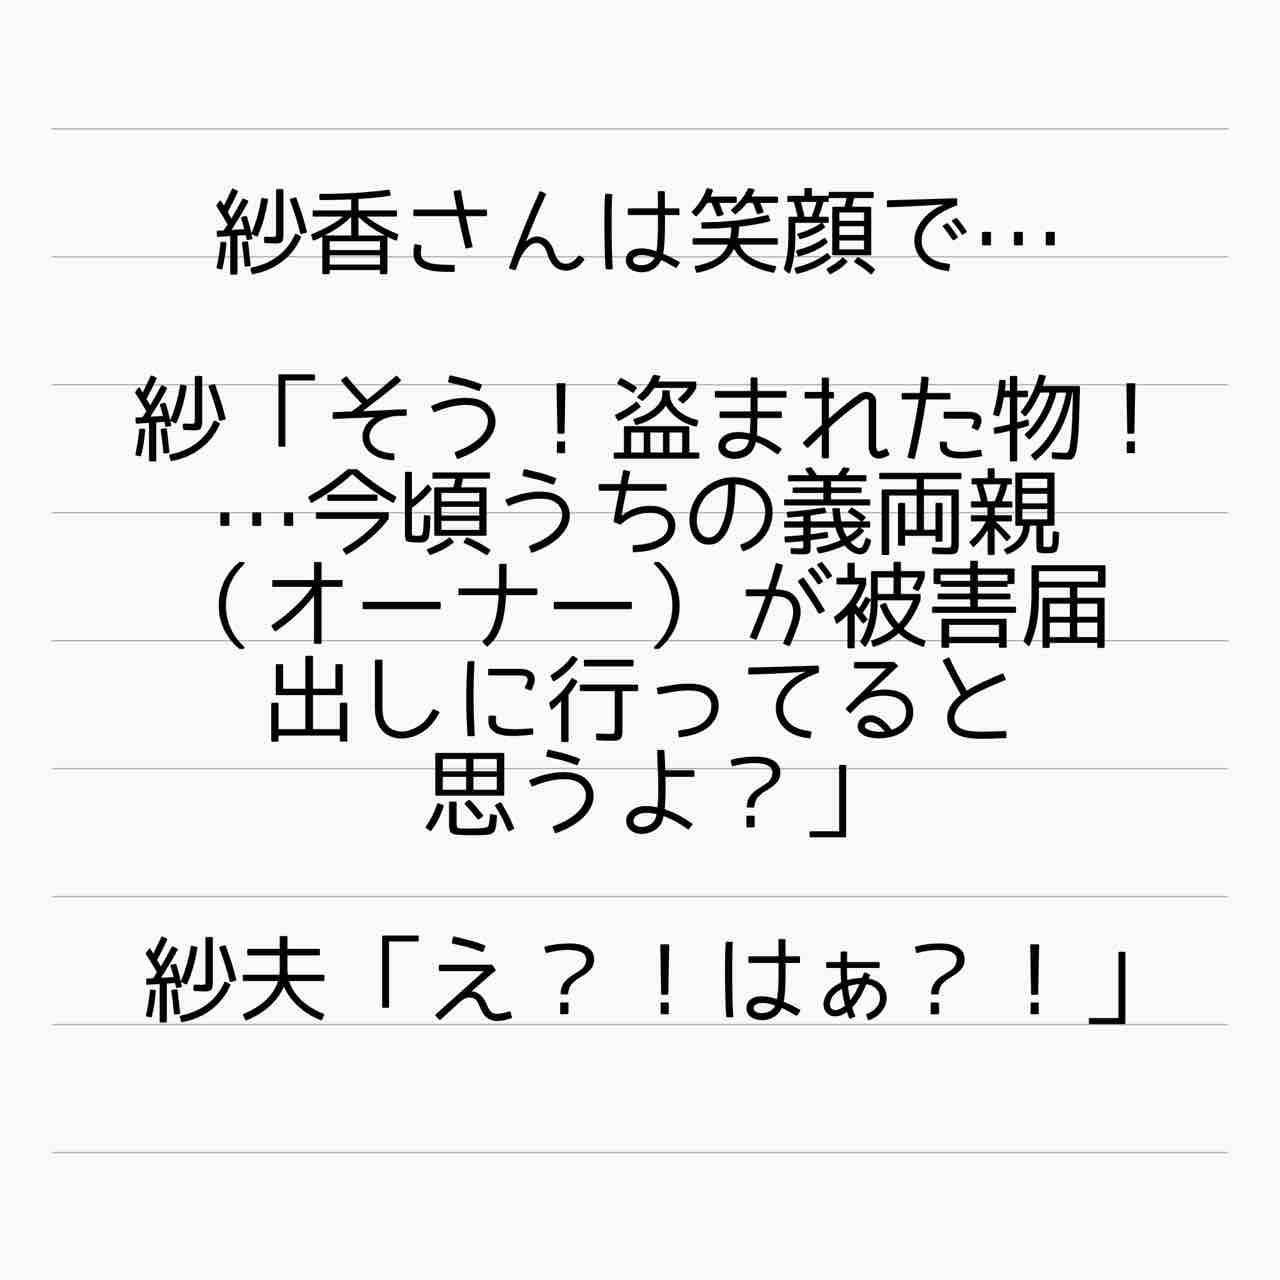 紗香さんは笑顔で…
紗「そう！盗まれた物！
…今頃うちの義両親
（オーナー）が被害届
出しに行ってると
思うよ？」
紗夫「え？！はぁ？！」